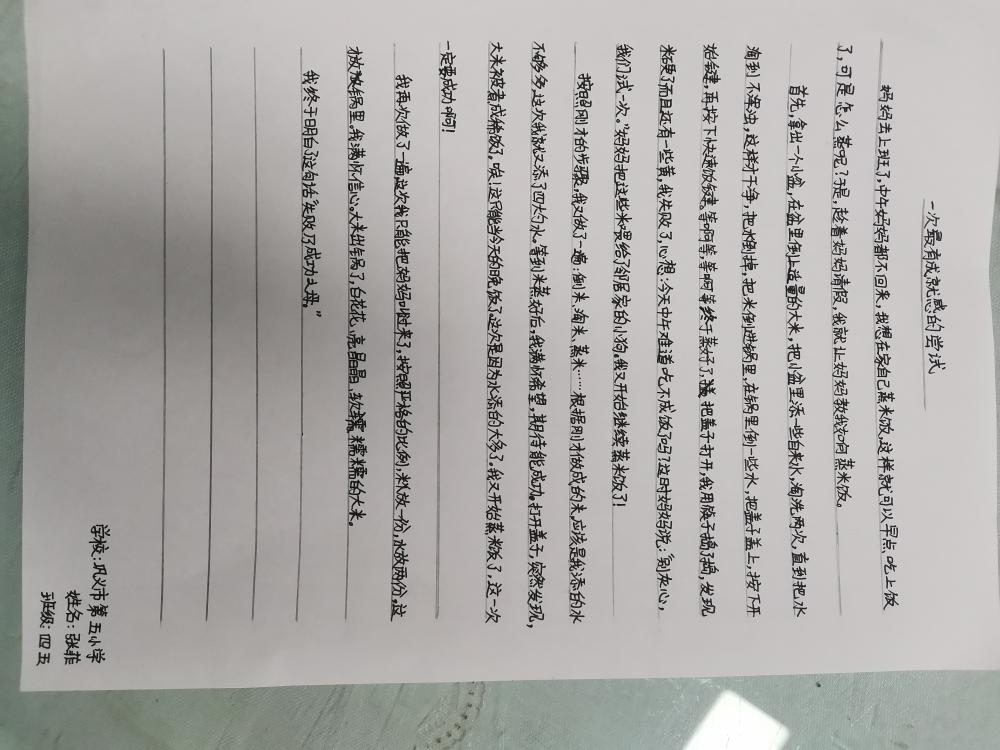 一次最有成就感的尝试
妈妈去上班了,中午妈妈都不回来,我想在家自己蒸米饭,这样就可以早点吃上饭
了,可是怎么蒸呢?于是,趁着妈妈请假,我就让妈妈教我如何蒸米饭。
首先,拿出一个小盆,在盆里倒上适量的大米,把小盆里添一些自来水,淘洗两次,直到把水
淘到不浑浊,这样才干净,把水倒掉,把米倒进锅里,在锅里倒一些水,把盖子盖上,按下开
始键,再按下快速饭键。等啊等,等啊等终于蒸好了,把盖子打开,我用筷子捣了捣,发现
米硬了而且还有一些黄,我失败了,心想:今天中午难道吃不成饭了吗?这时妈妈说:“别灰心,
我们再试一次。”妈妈把这些米喂给了邻居家的小狗。我又开始继续蒸米饭了!
按照刚才的步骤,我又做了一遍:倒米、淘米、蒸米……根据刚才做成的米,应该是我添的水
不够多,这次我就又添了四大勺水。等到米蒸好后,我满怀希望,期待能成功。打开盖子,突然发现,
大米被煮成稀饭了。唉!这只能当今天的晚饭了这次是因为水添的太多了。我又开始蒸米饭了,这一次
一定要成功啊!
我再次做了一遍,这次我只能把妈妈叫过来了,按照严格的比例,米放一份,水放两份,这
才放到锅里。我满怀信心。大米出锅了,白花花、亮晶晶、软糯糯的大米。
我终于明白了这句话“失败了成功之母。”
学校:巩义市第五小学
姓名:张菲
班级:四五